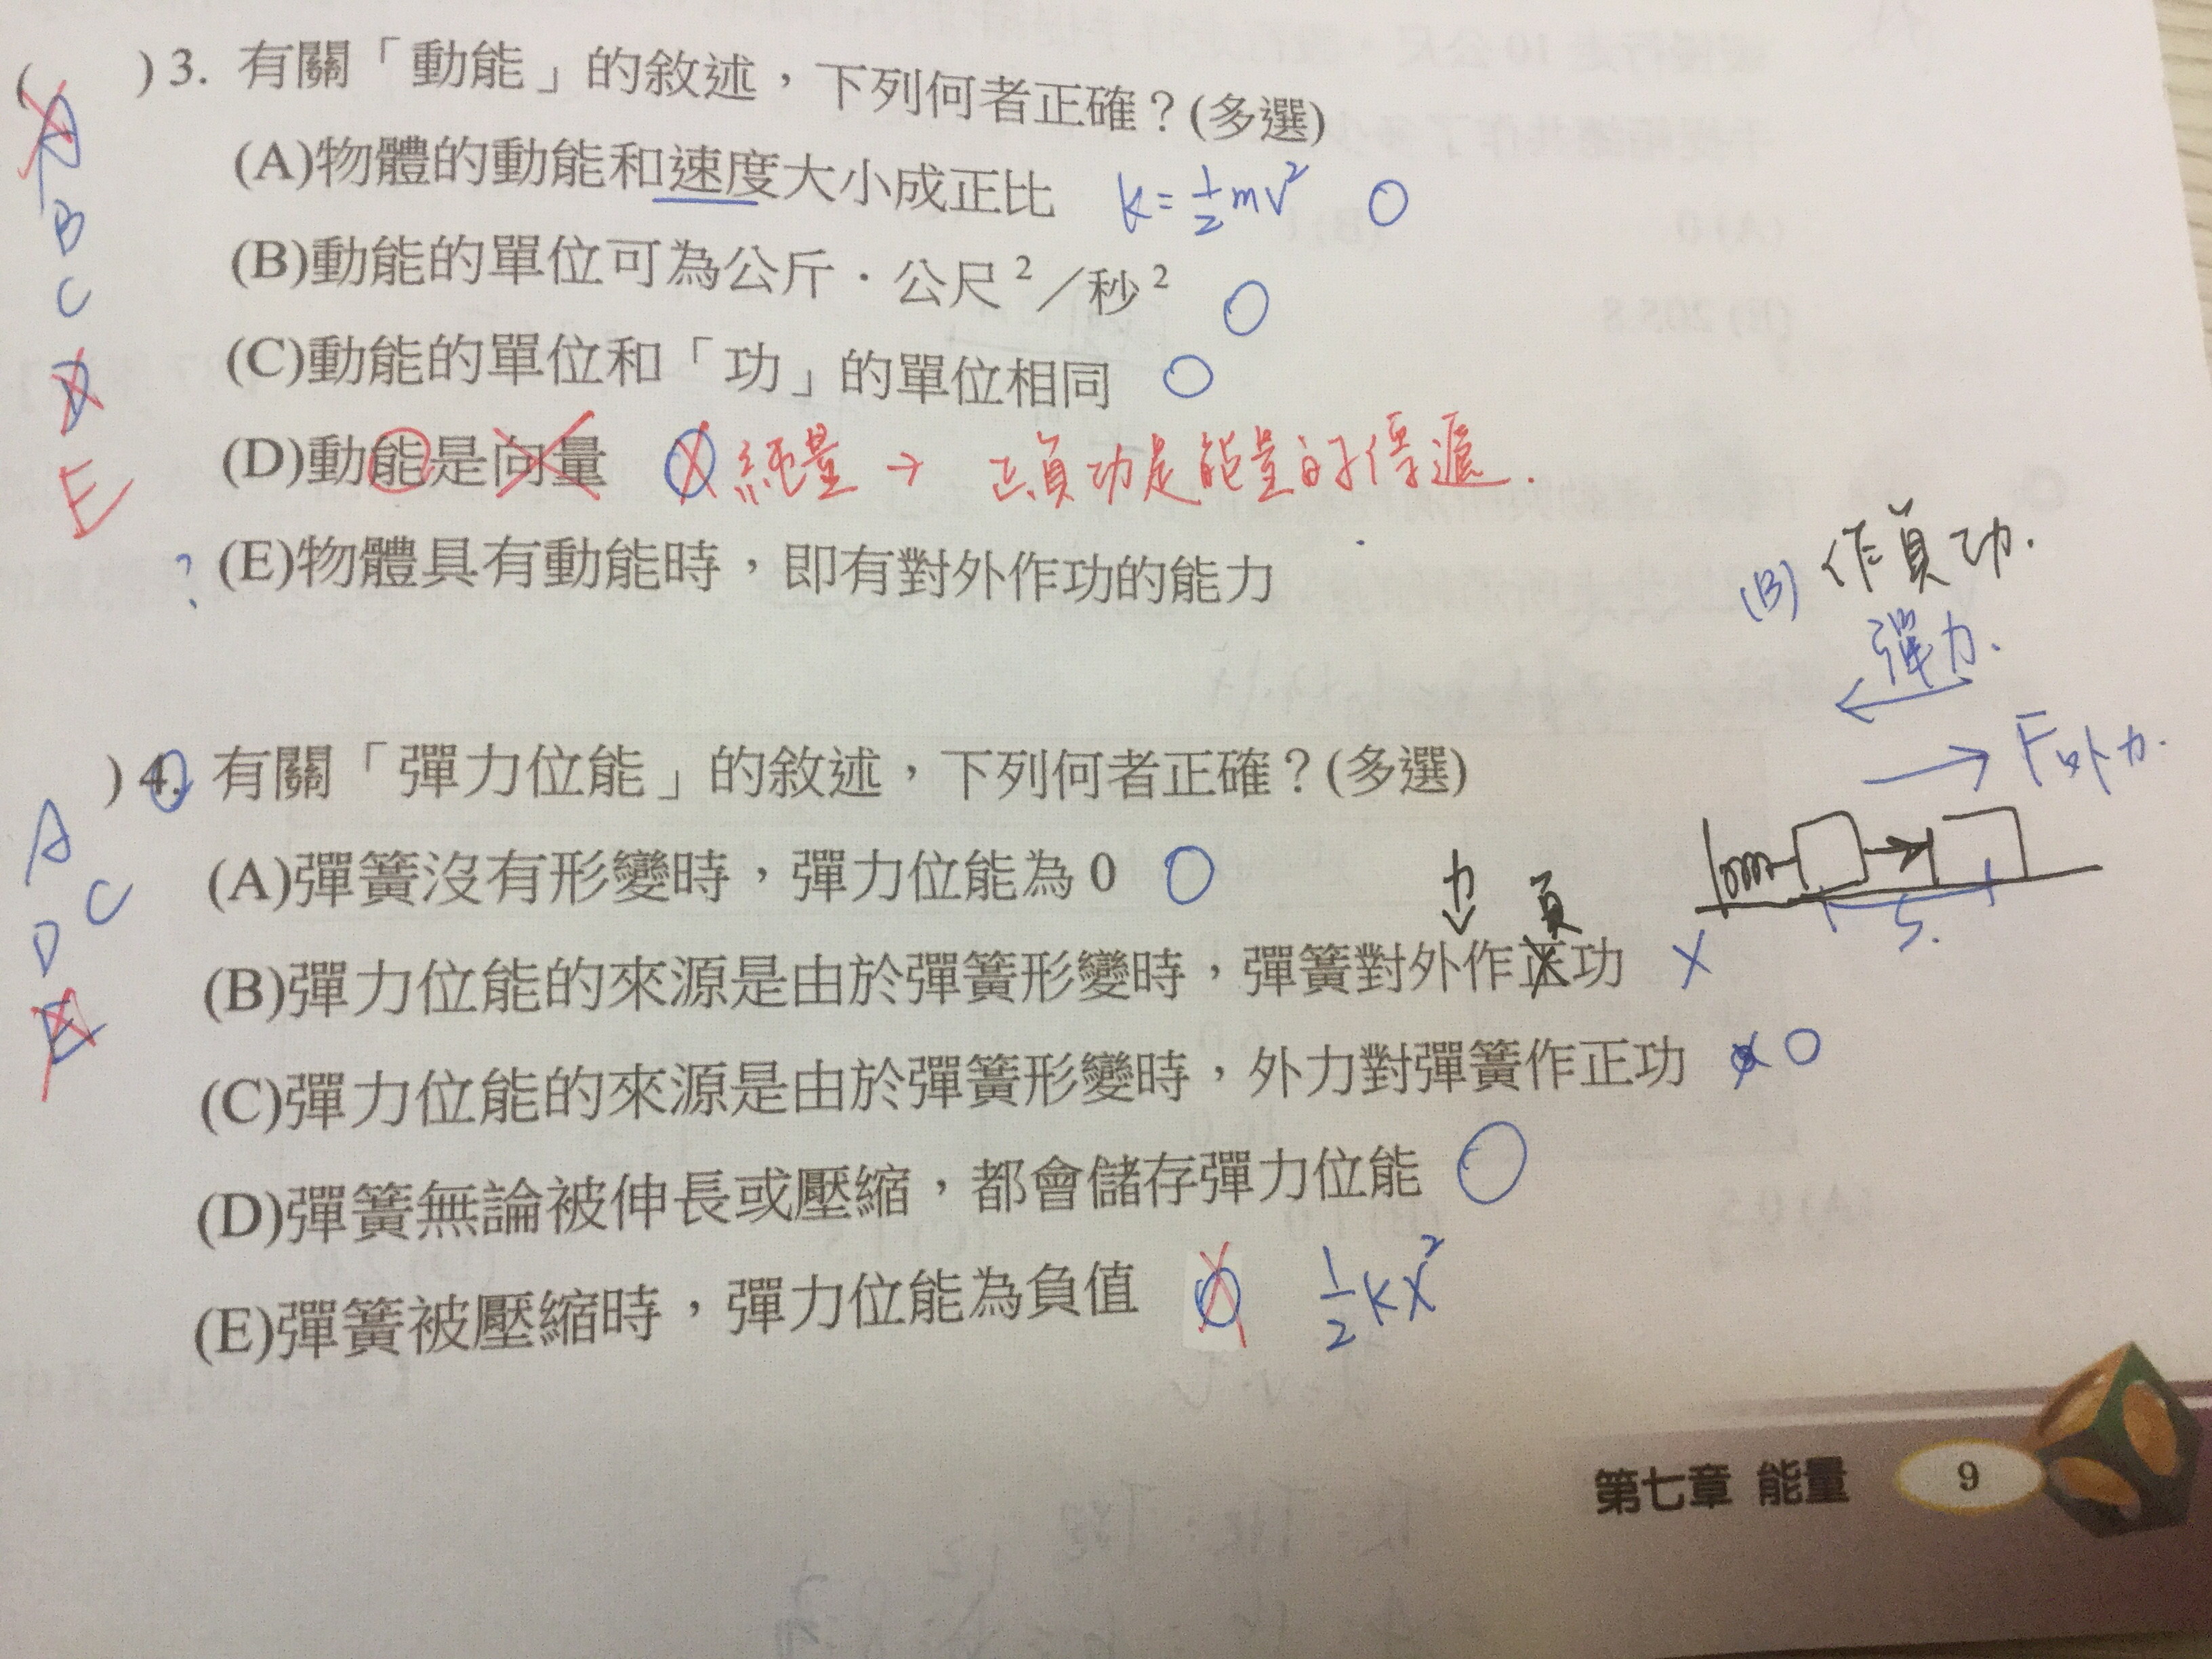 ( A ) 3. 有關「動能」的敘述，下列何者正確？(多選)
(A)物體的動能和速度大小成正比 K=½mv² O
B
(B)動能的單位可為公斤．公尺²／秒² O
C
(C)動能的單位和「功」的單位相同 O
D
(D)動能是向量 純量 → 正負功是能量的傳遞.
E
? (E)物體具有動能時，即有對外作功的能力
(B) 作負功.
彈力.
F外力.
S.
) 4. 有關「彈力位能」的敘述，下列何者正確？(多選)
A
(A)彈簧沒有形變時，彈力位能為 0 O
C
D
力 負
(B)彈力位能的來源是由於彈簧形變時，彈簧對外作正功 X
E
(C)彈力位能的來源是由於彈簧形變時，外力對彈簧作正功 O
(D)彈簧無論被伸長或壓縮，都會儲存彈力位能 O
(E)彈簧被壓縮時，彈力位能為負值 ½kx²
第七章 能量 9